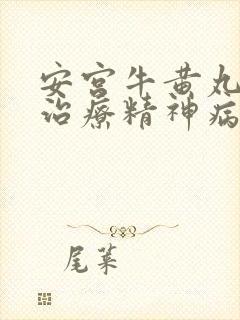 安宫牛黄丸
治療精神病
尾葉